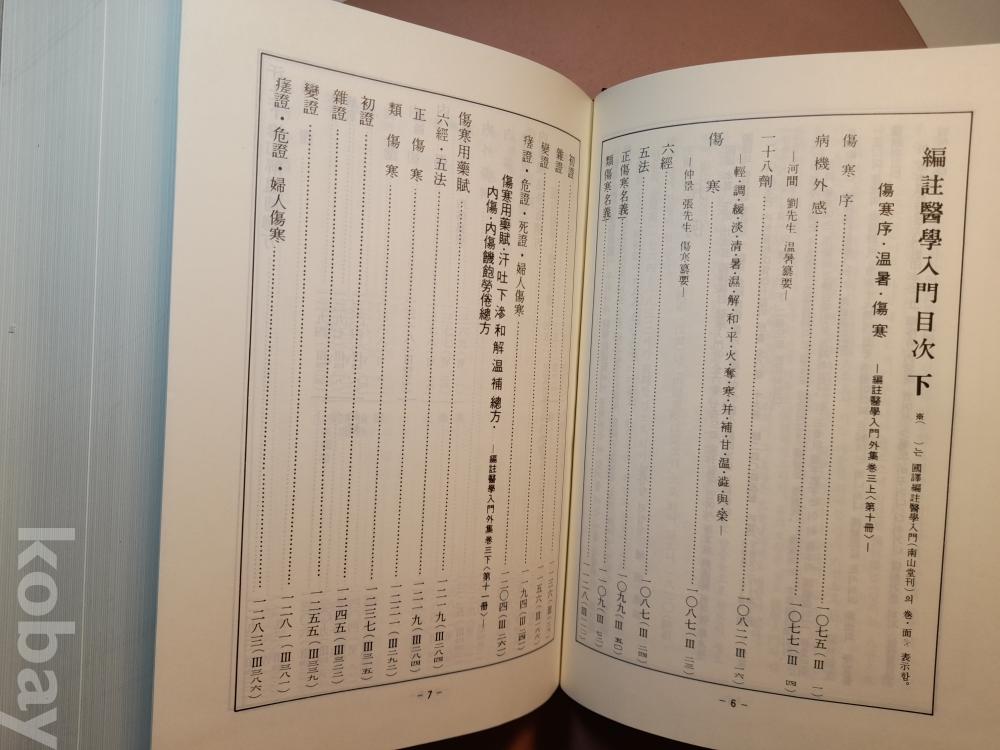 編註醫學入門目次 下
※( )는 國譯編註醫學入門(南山堂刊)의 卷·面
表示함.
傷寒序·温暑·傷寒 —編註醫學入門外集卷三上〈第十冊〉—
傷寒序 一○七五(Ⅲ 一)
病機外感 一○七七(Ⅲ 四)
—河間 劉先生 温暑纂要—
二十八劑 一○八二(Ⅲ 一六)
—輕·調·緩·淡·清·暑·濕·解·和·平·火·奪·寒·并·補·甘·温·澁·與·榮—
傷寒 一○八七(Ⅲ 二三)
—仲景 張先生 傷寒纂要—
六經
五法 一○八七(Ⅲ 二四)
正傷寒名義 一○九九(Ⅲ 五○)
類傷寒名義
初證
雜證
變證
瘥證·危證·死證·婦人傷寒 一一九四(Ⅲ 二四二)
傷寒用藥賦·汗吐下滲和解温補總方·
內傷·內傷饑飽勞倦總方 —編註醫學入門外集卷三下〈第十一冊〉—
傷寒用藥賦 一二○四(Ⅲ 二六二)
六經·五法 一二一九(Ⅲ 二八四)
正傷寒 一二一九(Ⅲ 二八四)
類傷寒 一二二一(Ⅲ 二九二)
初證 一二三七(Ⅲ 三一五)
雜證 一二四五(Ⅲ 三二二)
變證 一二五五(Ⅲ 三三九)
瘥證·危證·婦人傷寒 一二八一(Ⅲ 三八一)
一二八三(Ⅲ 三八六)
-6-
-7-
kobay